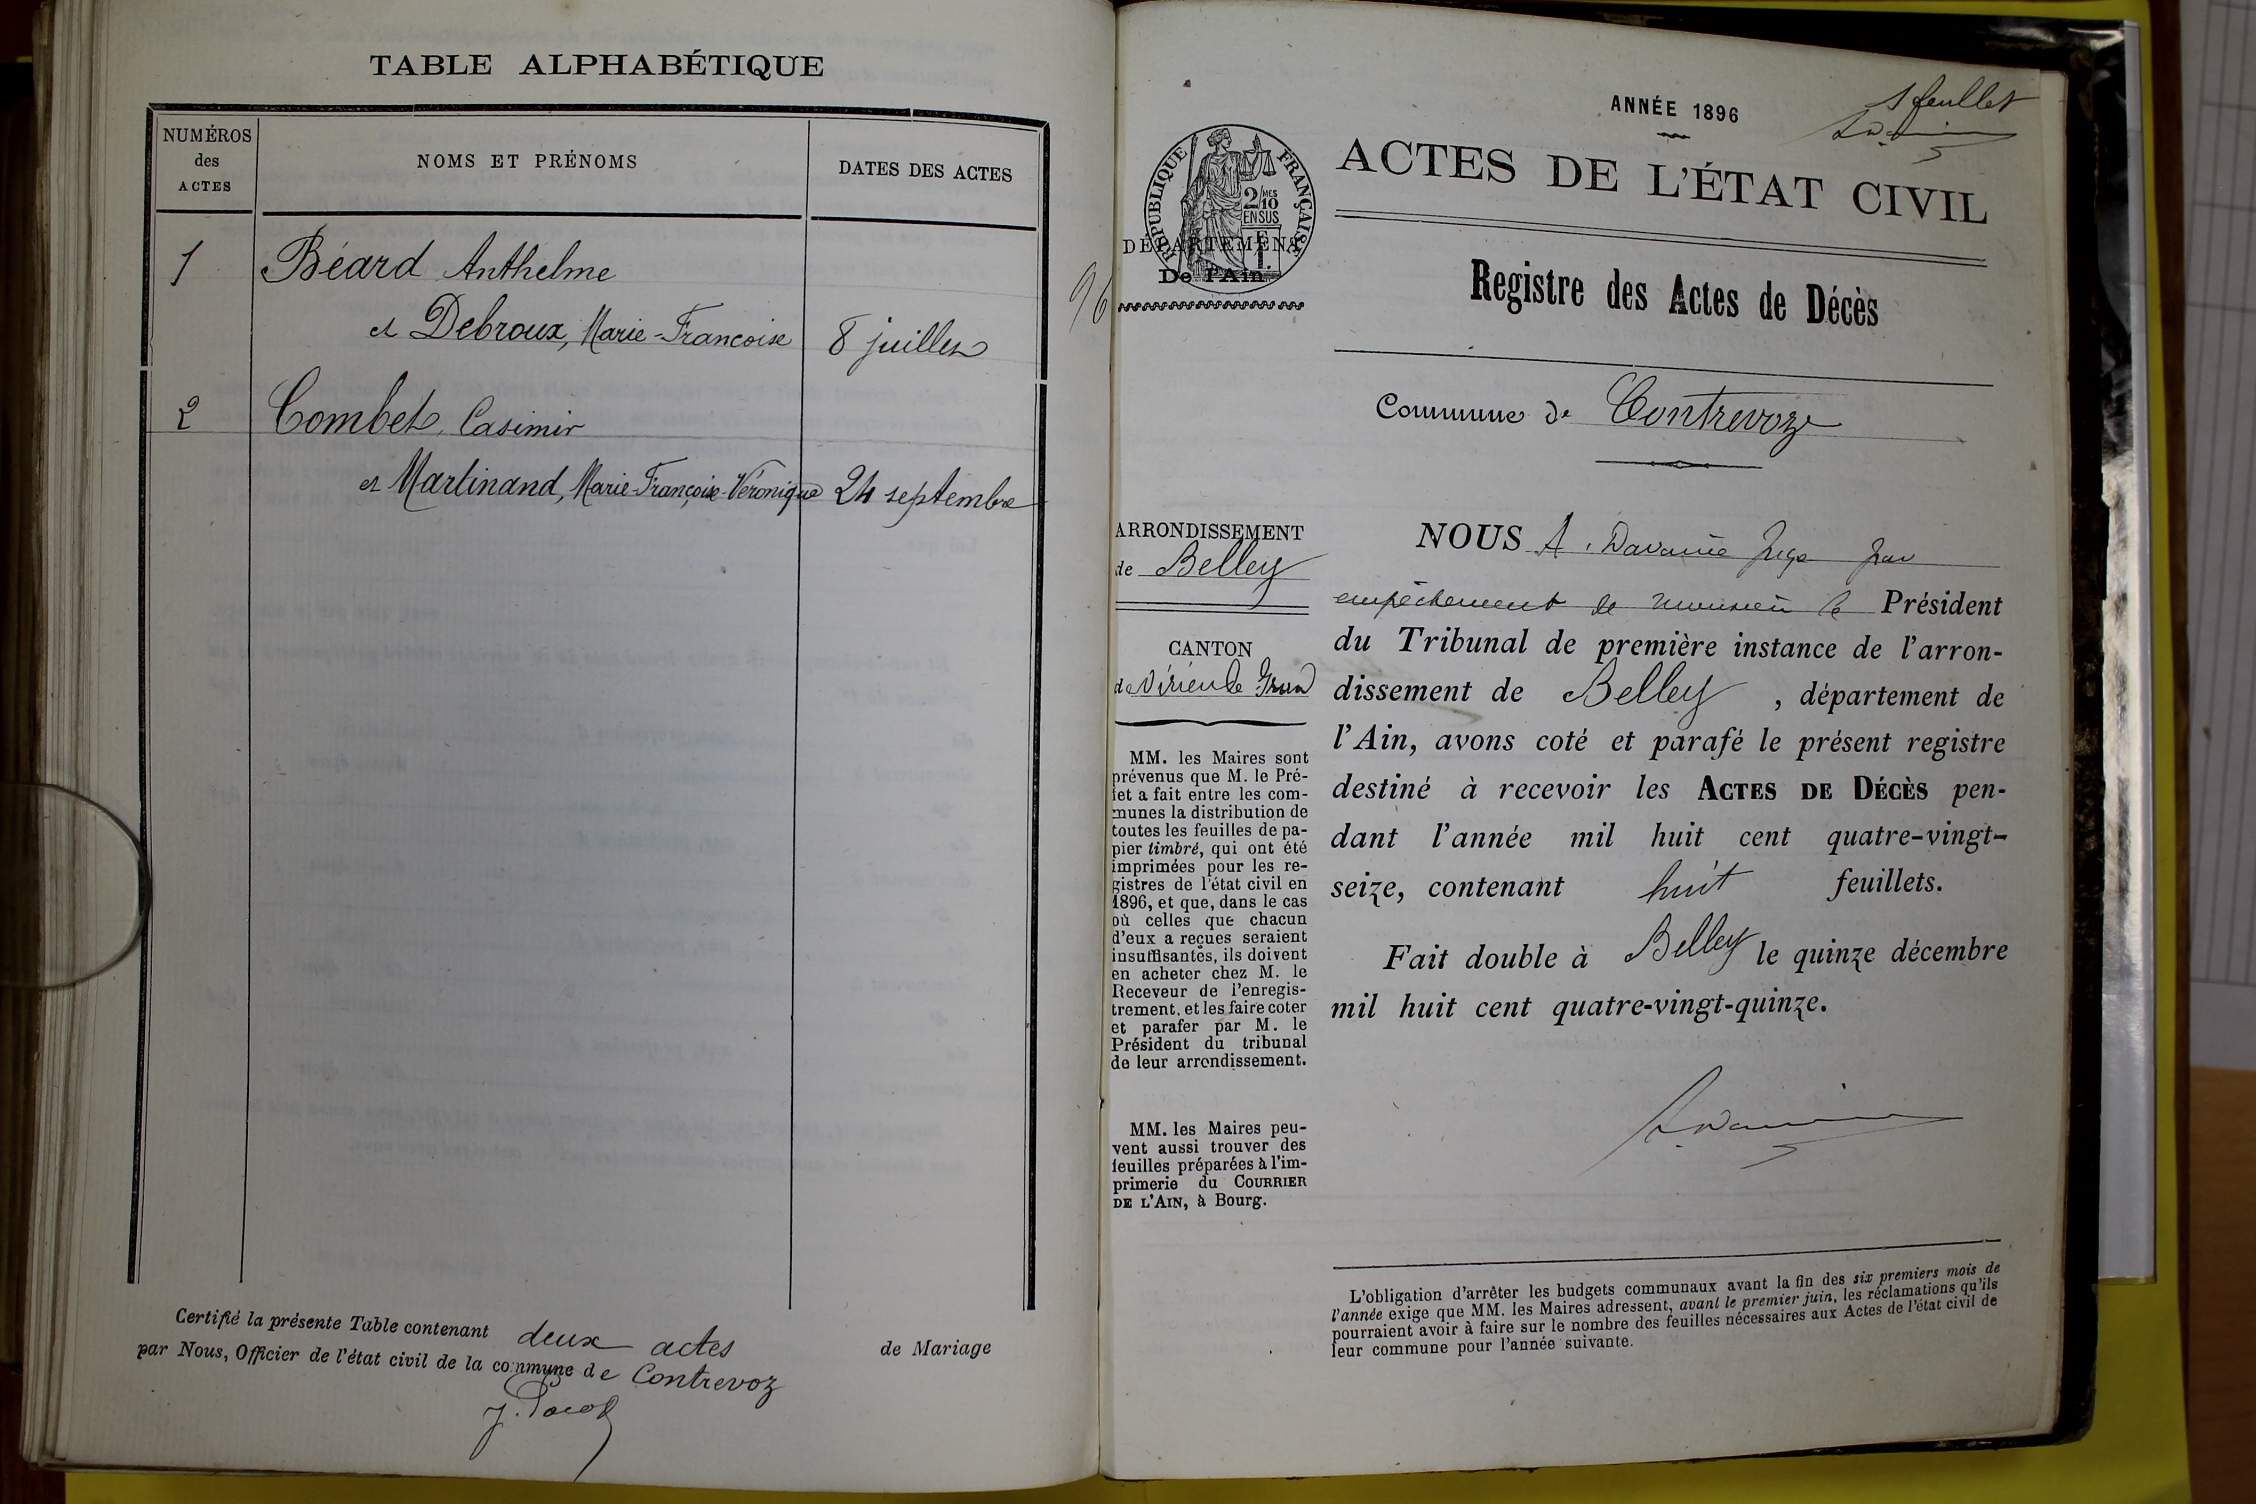 TABLE ALPHABÉTIQUE
NUMÉROS
des
ACTES
NOMS ET PRÉNOMS
DATES DES ACTES
1 Béard Anthelme
et Debroux, Marie-Francoise 8 juillet
2 Combet, Casimir
et Martinand, Marie-Françoise-Véronique 24 septembre
Certifié la présente Table contenant deux actes de Mariage
par Nous, Officier de l'état civil de la commune de Contrevoz
1 feuillet
ANNÉE 1896
ACTES DE L'ÉTAT CIVIL
RÉPUBLIQUE FRANÇAISE
2/10 MES
EN SUS
1 F.
DÉPARTEMENT
De l'Ain
96
Registre des Actes de Décès
Commune de Contrevoz
ARRONDISSEMENT
de Belley
CANTON
de Virieu le Grand
MM. les Maires sont
prévenus que M. le Pré-
fet a fait entre les com-
munes la distribution de
toutes les feuilles de pa-
pier timbré, qui ont été
imprimées pour les re-
gistres de l'état civil en
1896, et que, dans le cas
où celles que chacun
d'eux a reçues seraient
insuffisantes, ils doivent
en acheter chez M. le
Receveur de l'enregis-
trement, et les faire coter
et parafer par M. le
Président du tribunal
de leur arrondissement.
MM. les Maires peu-
vent aussi trouver des
feuilles préparées à l'im-
primerie du COURRIER
DE L'AIN, à Bourg.
NOUS A. juge par
empêchement de monsieur le Président
du Tribunal de première instance de l'arron-
dissement de Belley, département de
l'Ain, avons coté et parafé le présent registre
destiné à recevoir les ACTES DE DÉCÈS pen-
dant l'année mil huit cent quatre-vingt-
seize, contenant huit feuillets.
Fait double à Belley le quinze décembre
mil huit cent quatre-vingt-quinze.
L'obligation d'arrêter les budgets communaux avant la fin des six premiers mois de
l'année exige que MM. les Maires adressent, avant le premier juin, les réclamations qu'ils
pourraient avoir à faire sur le nombre des feuilles nécessaires aux Actes de l'état civil de
leur commune pour l'année suivante.